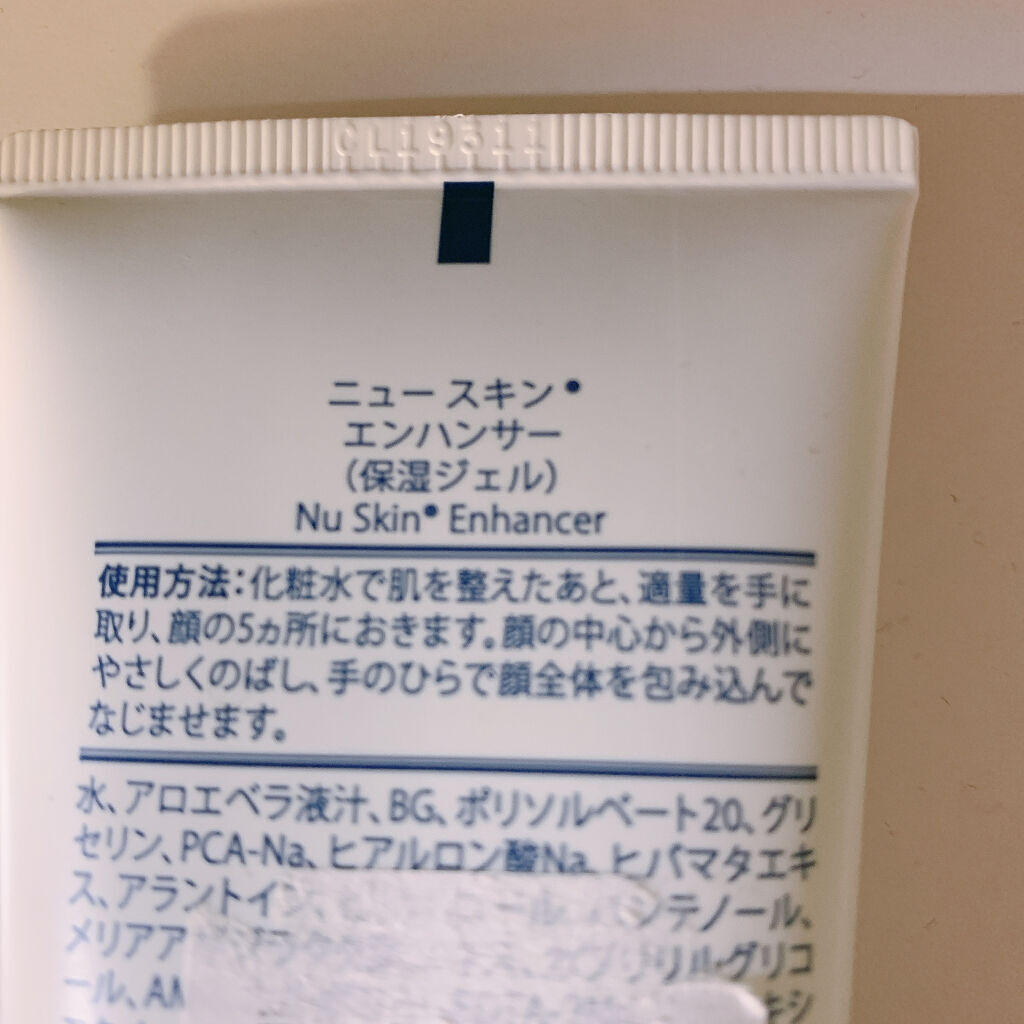 CL19311
ニュー スキン●
エンハンサー
（保湿ジェル）
Nu Skin● Enhancer
使用方法：化粧水で肌を整えたあと、適量を手に
取り、顔の5ヵ所におきます。顔の中心から外側に
やさしくのばし、手のひらで顔全体を包み込んで
なじませます。
水、アロエベラ液汁、BG、ポリソルベート20、グリ
セリン、PCA-Na、ヒアルロン酸Na、ヒバマタエキ
ス、アラントイン、 ール、パンテノール、
メリアア リルグリコ
ール、AM キシ